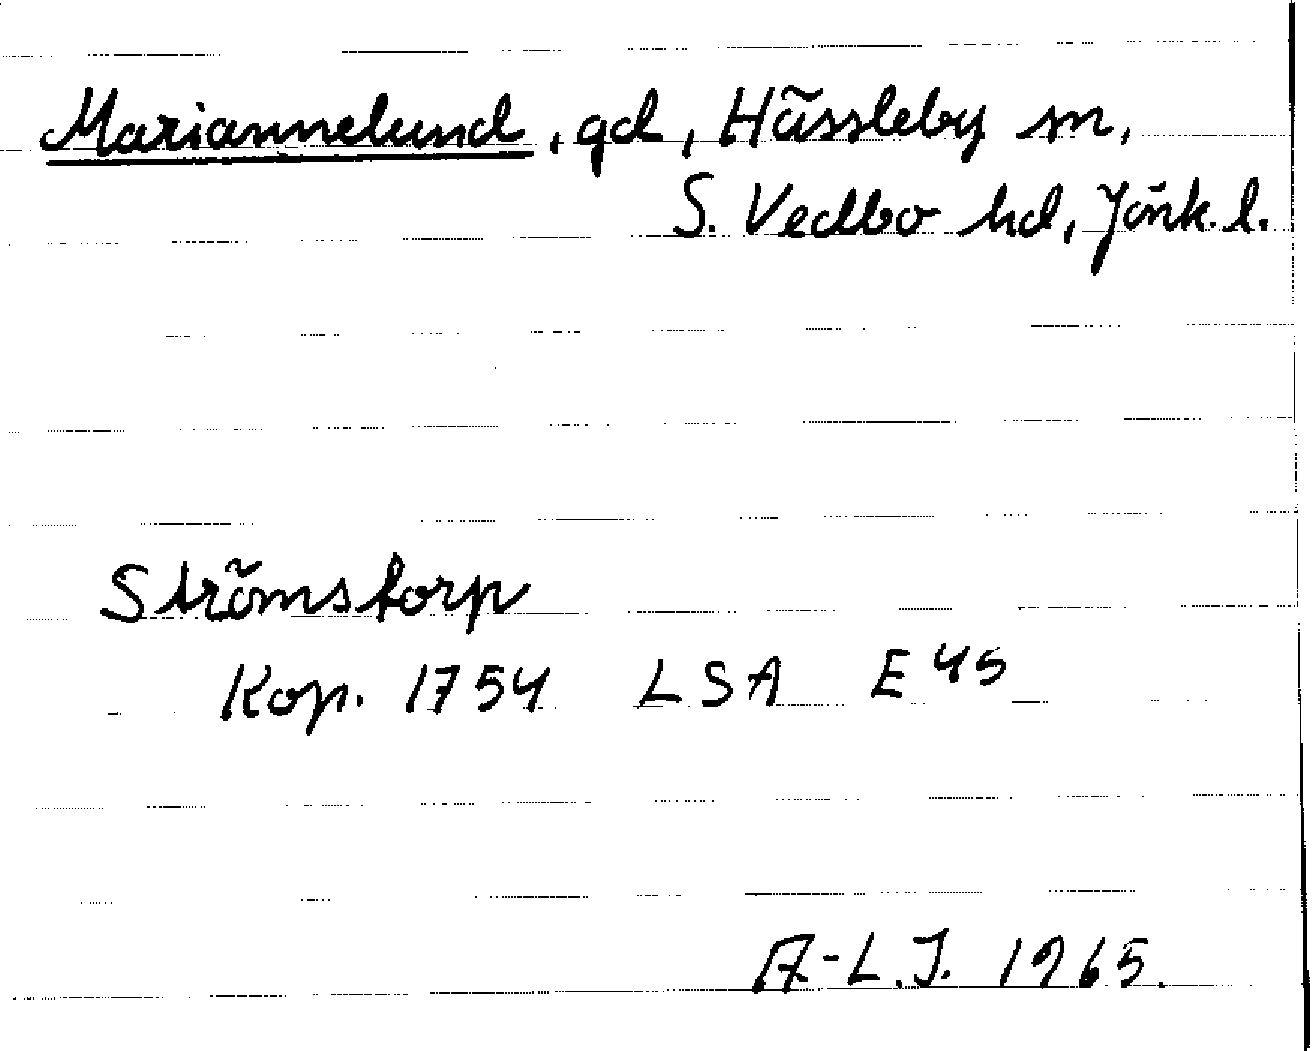 Mariannelund, gd, Hässleby sn,
S. Vedbo hd, Jönk. l.
Strömstorp
Kop. 1754 LSA E 45
A-L.J. 1965.